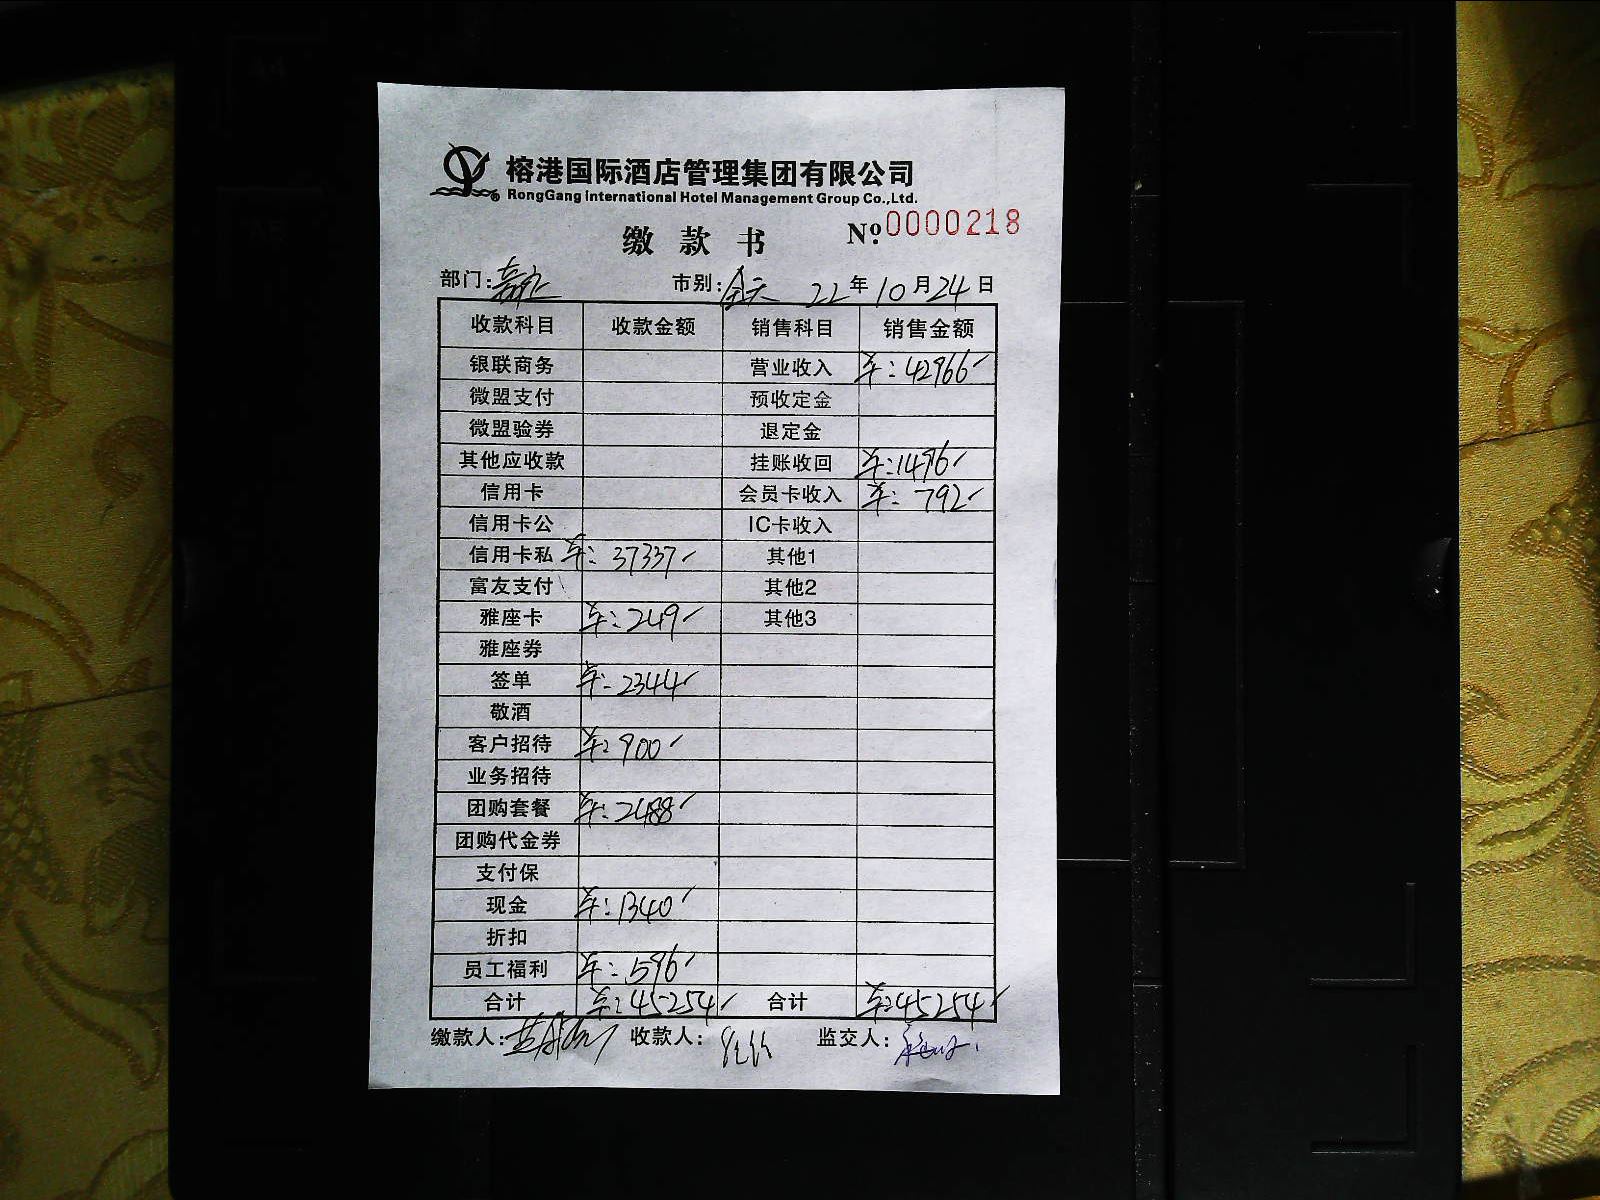 榕港国际酒店管理集团有限公司
RongGang International Hotel Management Group Co.,Ltd.
缴款书 Nº:0000218
部门: 市别:全天 22年10月24日
收款科目 收款金额 销售科目 销售金额
银联商务 营业收入 车:42966
微盟支付 预收定金
微盟验券 退定金
其他应收款 挂账收回 车:1496
信用卡 会员卡收入 车:792
信用卡公 IC卡收入
信用卡私 车:37337 其他1
富友支付 其他2
雅座卡 车:249 其他3
雅座券
签单 车:2344
敬酒
客户招待 车:900
业务招待
团购套餐 车:2488
团购代金券
支付保
现金 车:1340
折扣
员工福利 车:596
合计 车:45254 合计 车:45254
缴款人: 收款人: 监交人: